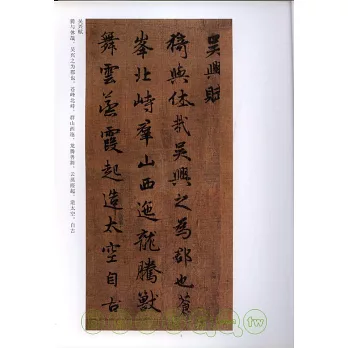 吳興賦
猗與休哉吳興之為郡也蒼
峯北峙羣山西迤龍騰獸
舞雲蒸霞起造太空自古
吳興賦
猗與休哉，吳興之為郡也，蒼峰北峙，群山西迤，龍騰獸舞，雲蒸霞起，造太空，自古